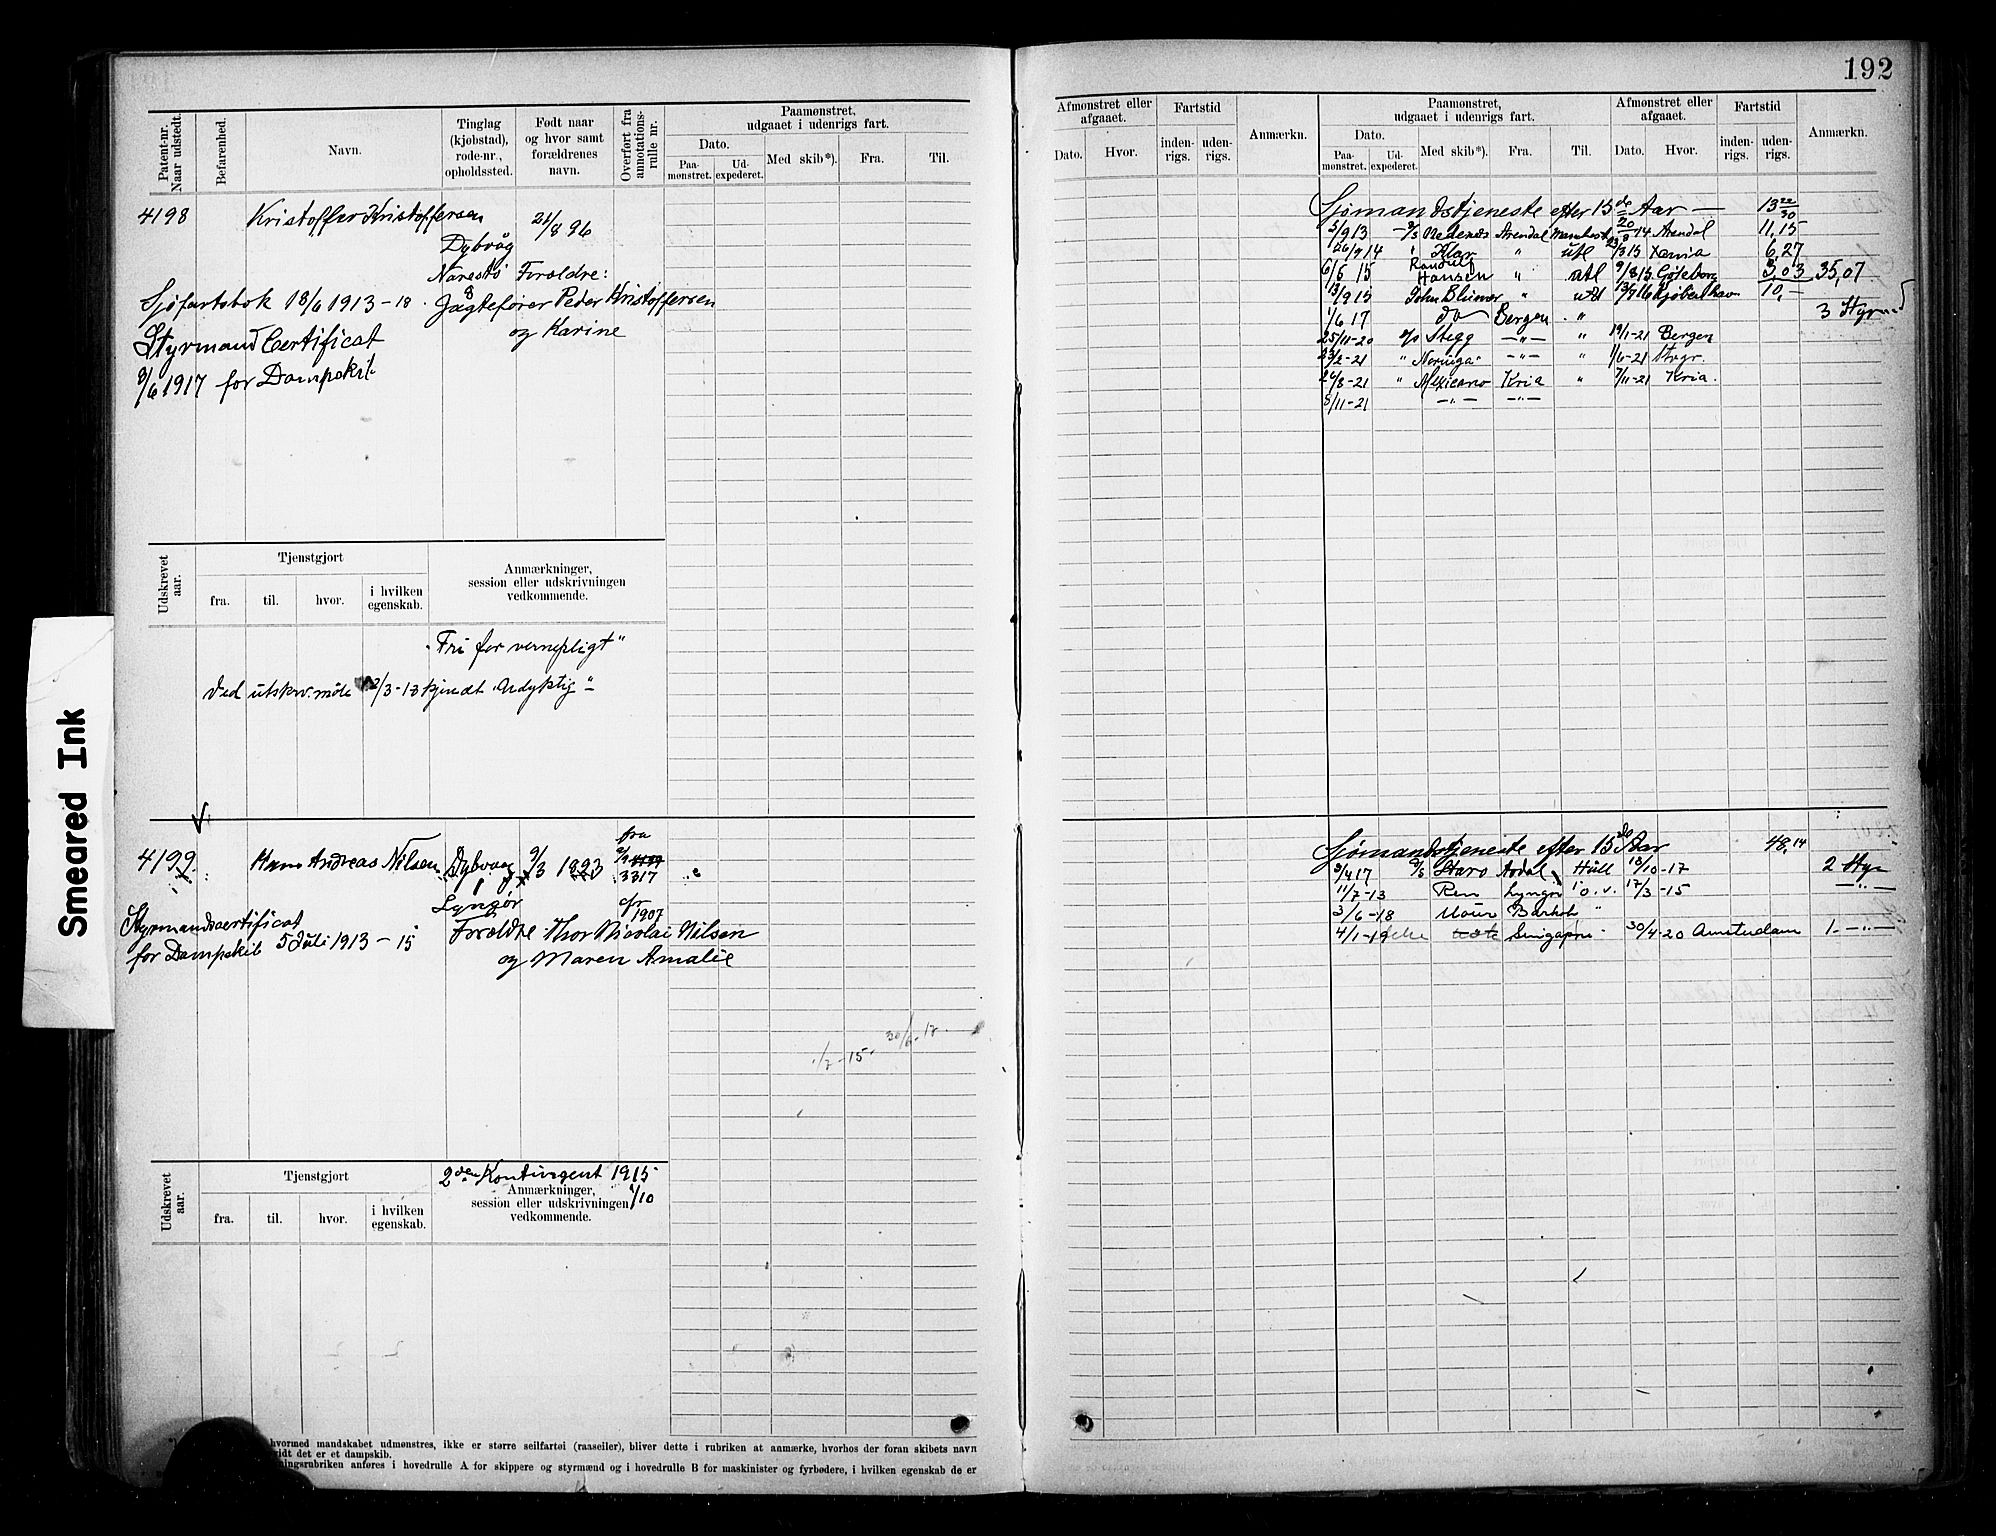 192
Smeared Ink
Patent-nr. Naar udstedt.
Befarenhed.
Navn.
Tinglag (kjøbstad), rode-nr., opholdssted.
Født naar og hvor samt forældrenes navn.
Overført fra annotations-rulle nr.
Paamønstret, udgaaet i udenrigs fart.
Dato.
Paa-mønstret.
Ud-expederet.
Med skib*).
Fra.
Til.
Afmønstret eller afgaaet.
Dato.
Hvor.
Fartstid
inden-rigs.
uden-rigs.
Anmærkn.
Paamønstret, udgaaet i udenrigs fart.
Dato.
Paa-mønstret.
Ud-expederet.
Med skib*).
Fra.
Til.
Afmønstret eller afgaaet.
Dato.
Hvor.
Fartstid
inden-rigs.
uden-rigs.
Anmærkn.
4198 Kristoffer Kristoffersen 21/8 96
Dybvåg
Narestø Foreldre:
Sjøfartsbok 18/6 1913 - 18. Jagtefører Peder Kristoffersen
og Karine
Styrmand Certificat
8/6 1917 for Dampskib
Sjømandstjeneste efter 15 de Aar — 13 22/30
5/9 13 Nedenes Arendal 14 Arendal 11,15
26/9 14 " Klar " utl Xania 6,27
6/6 15 Randulf Hansen " utl 9/8 15 Göteborg 3,03 35,07
13/9 15 John Blumer " utl Kjøbenhavn 10,—
1/6 17 do Bergen " 3 Styrmd
25/11-20 Stegg —"— " 19/1-21 Bergen
23/2-21 " Noruega —"— " 1/6-21
24/8-21 " Mexicano Kria " 7/11-21 Kria.
8/11-21 —"— —"—
Udskrevet aar.
Tjenstgjort
fra.
til.
hvor.
i hvilken egenskab.
Anmærkninger, session eller udskrivningen vedkommende.
"Fri for vernepligt"
Ved utskrv. møte 2/3-18 kjendt "Udyktig"
4199 Hans Andreas Nilsen Dybvaag 9/3 1893 fra
3317
Lyngør ofr 1907
Styrmandscertificat
for Dampskib 5 Juli 1913 - 15 Foreldre Thor Nicolai Nilsen
og Maren Amalie
Sjømandstjeneste efter 15 de Aar 48,14
3/4 17 Staro Hull 18/10-17 2 Styr
11/7-13 Ren Lyngør o.v. 17/3-15 —"—
3/6-18 "
4/1-19 Singapore 30/4-20 Amsterdam 1. —"—
1/7-15. 30/6-17.
2den Kontingent 1915 1/10
Udskrevet aar.
Tjenstgjort
fra.
til.
hvor.
i hvilken egenskab.
Anmærkninger, session eller udskrivningen vedkommende.
hvormed mandskabet udmønstres, ikke er større seilfartøi (raaseiler), bliver dette i rubriken at anmærke, hvorhos der foran skibets navn
idt det er et dampskib.
ningsrubriken anføres i hovedrulle A for skippere og styrmænd og i hovedrulle B for maskinister og fyrbødere, i hvilken egenskab de er